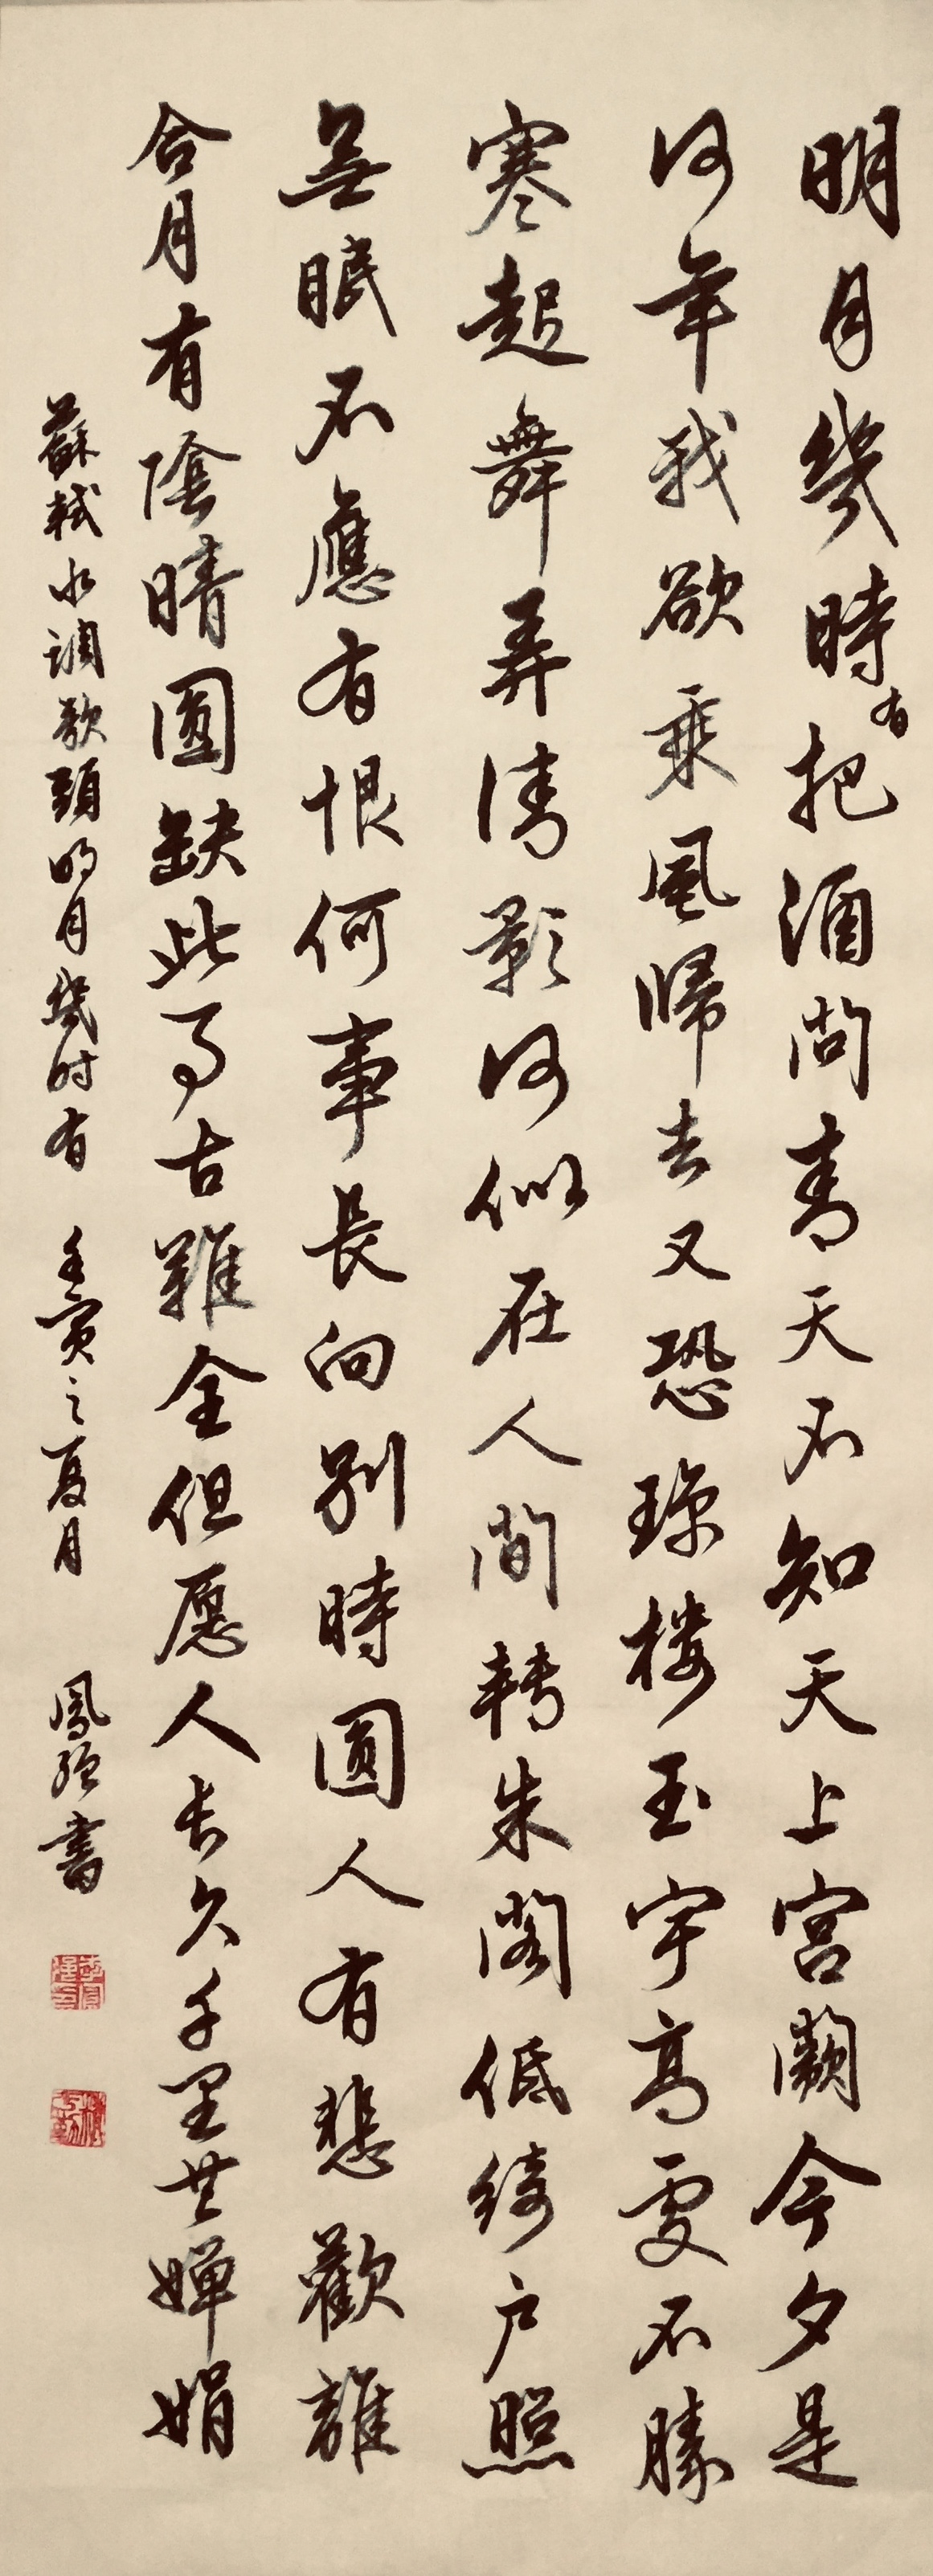 明月幾時有把酒問青天不知天上宮闕今夕是
何年我欲乘風歸去又恐瓊樓玉宇高處不勝
寒起舞弄清影何似在人間轉朱閣低綺户照
無眠不應有恨何事長向别時圓人有悲歡離
合月有陰晴圓缺此事古難全但愿人長久千里共嬋娟
蘇軾水調歌頭明月幾时有 壬寅之夏月 鳳強書